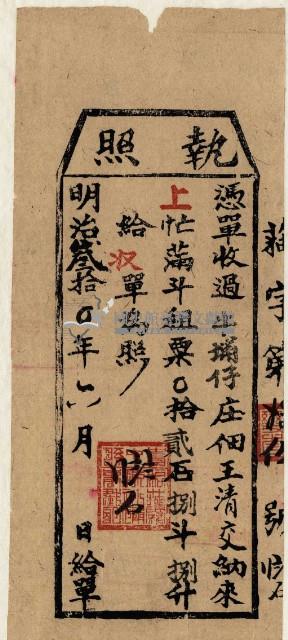 執照
憑單收過埔仔庄佃王清交納來
上忙滿斗租粟〇拾貳石捌斗捌升
給收單為照
明治叁拾〇年六月 日給單
字第拾伍號